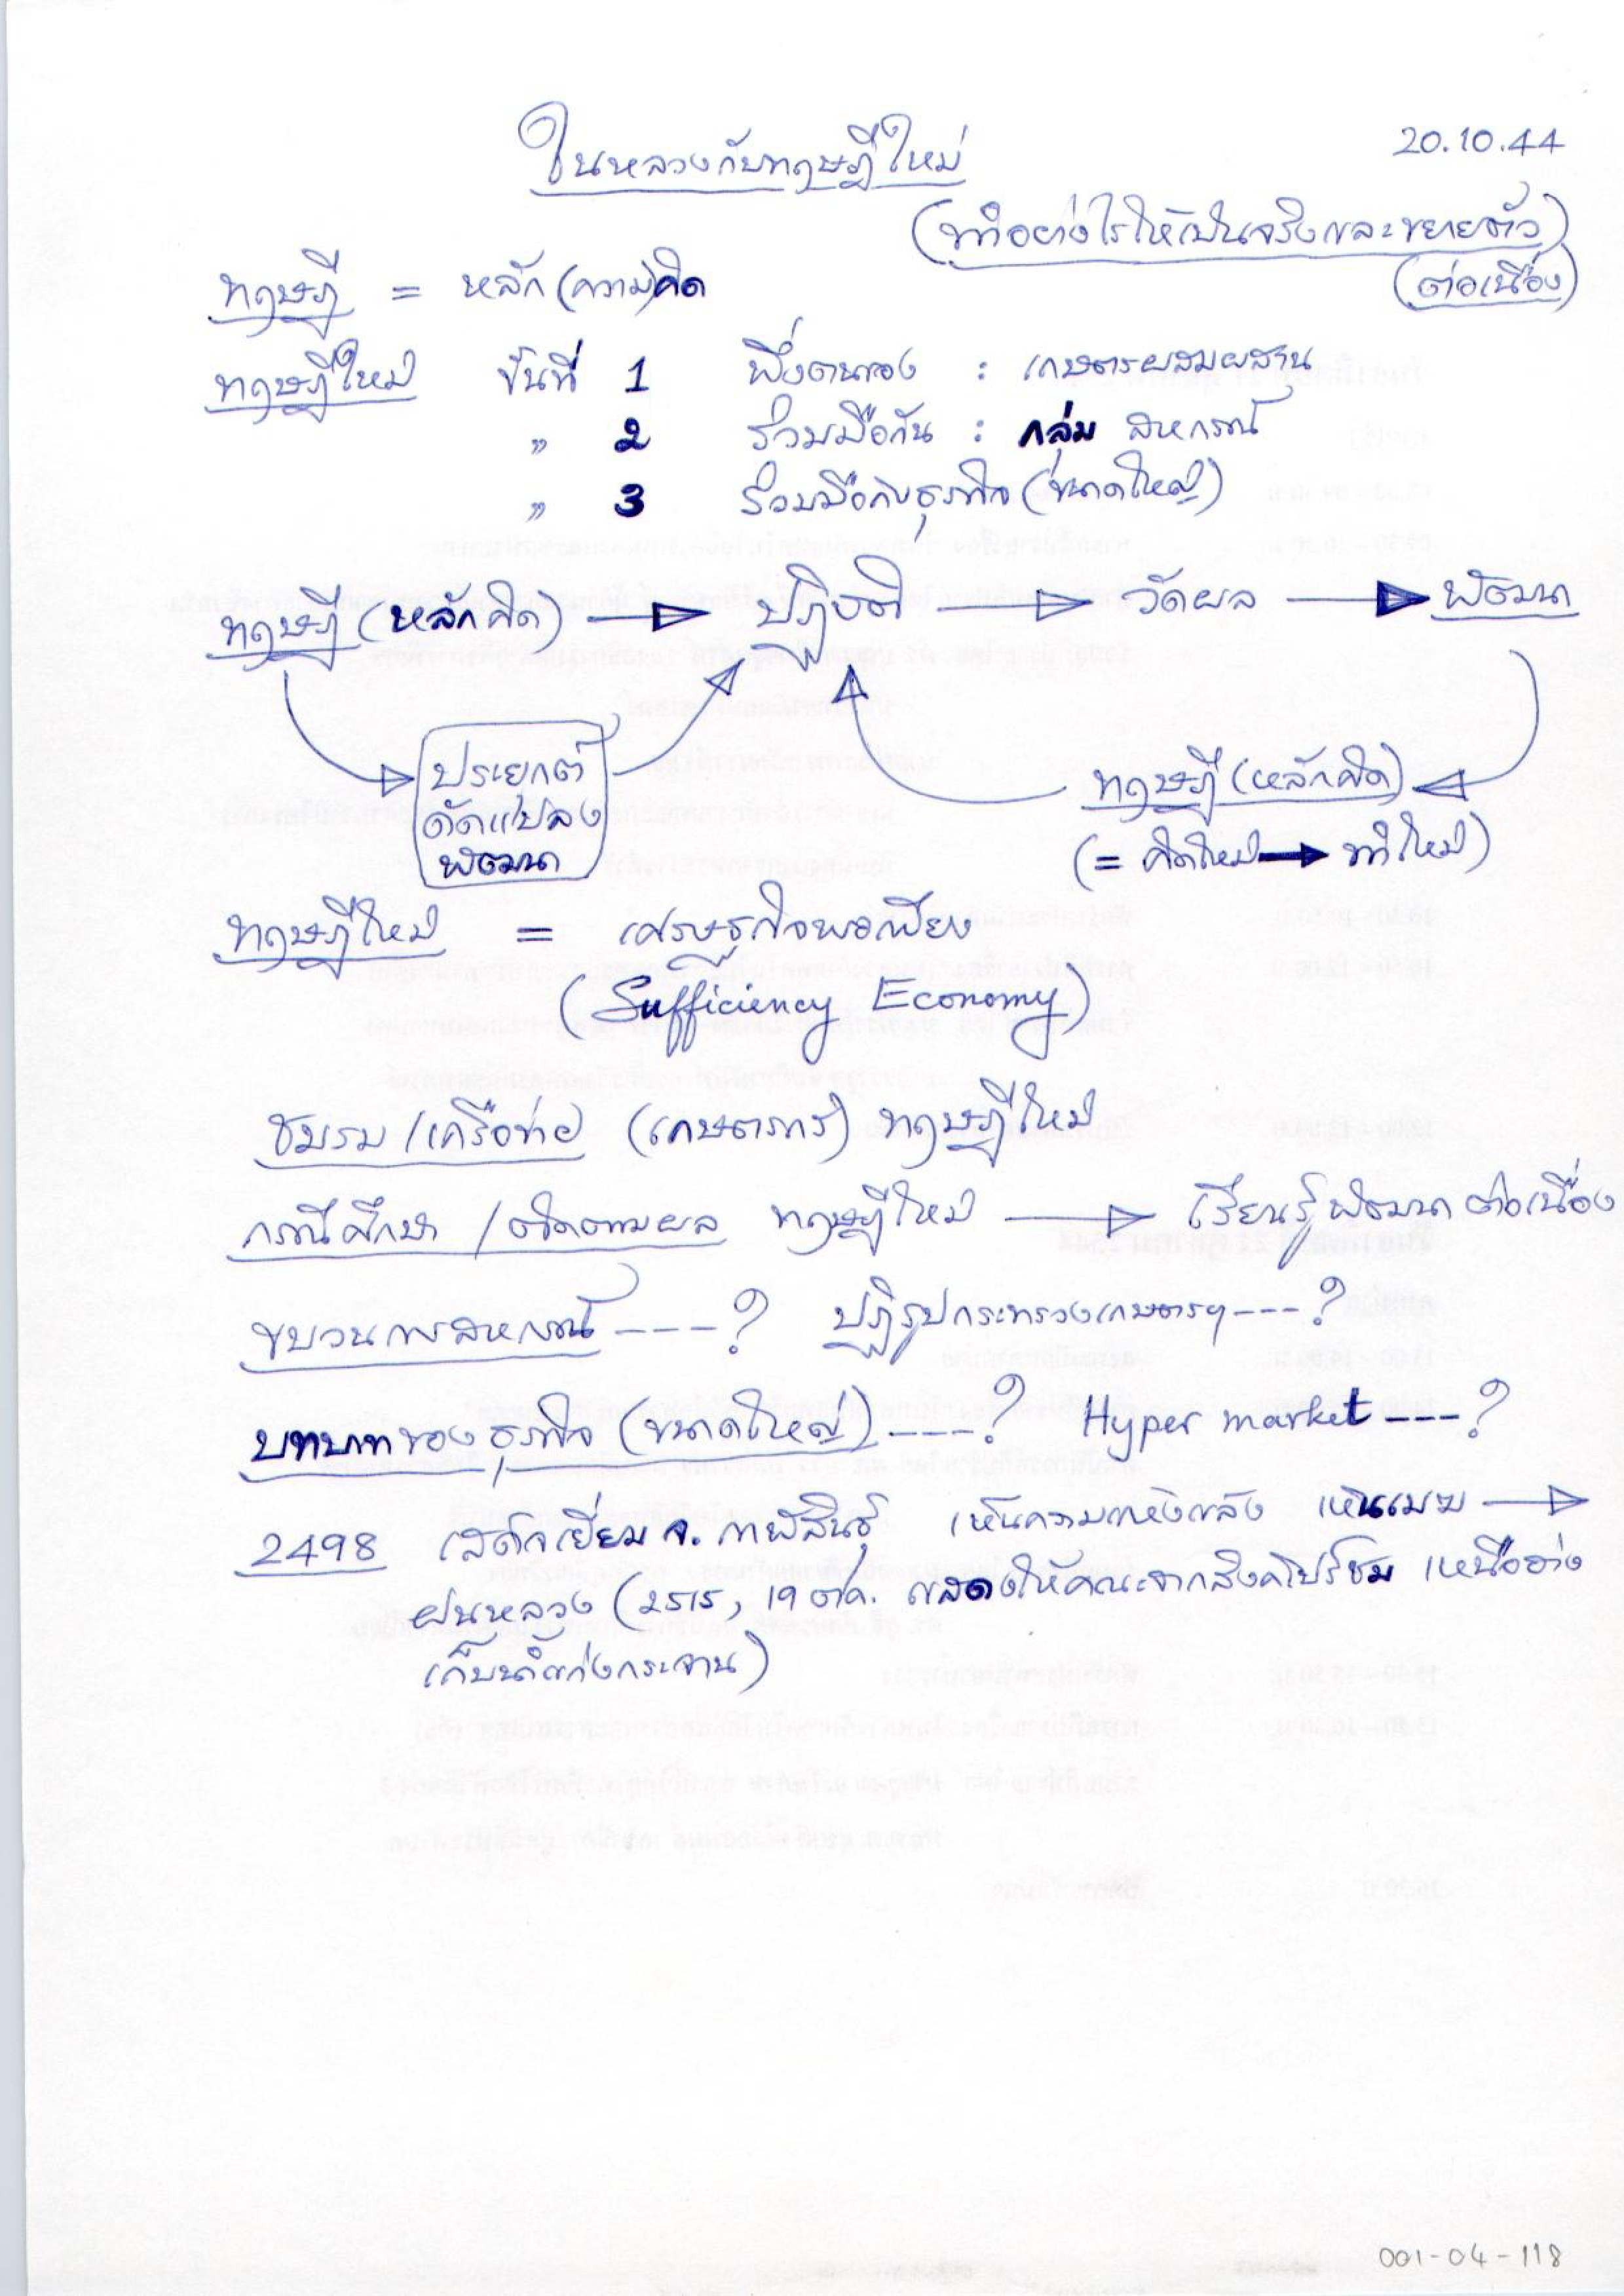 20.10.44
ในหลวงกับทฤษฎีใหม่
(ทำอย่างไรให้เป็นจริงและขยายตัว)
(ต่อเนื่อง)
ทฤษฎี = หลัก(ความ)คิด
ทฤษฎีใหม่ ขั้นที่ 1 พึ่งตนเอง : เกษตรผสมผสาน
" 2 ร่วมมือกัน : กลุ่ม สหกรณ์
" 3 ร่วมมือกับธุรกิจ (ขนาดใหญ่)
ทฤษฎี (หลักคิด) → ปฏิบัติ → วัดผล → พัฒนา
ประยุกต์
ดัดแปลง
พัฒนา
ทฤษฎี (หลักคิด)
(= คิดใหม่ → ทำใหม่)
ทฤษฎีใหม่ = เศรษฐกิจพอเพียง
(Sufficiency Economy)
ชมรม/เครือข่าย (เกษตรกร) ทฤษฎีใหม่
กรณีศึกษา / ติดตามผล ทฤษฎีใหม่ → เรียนรู้ พัฒนา ต่อเนื่อง
ขบวนการสหกรณ์ ----? ปฏิรูปกระทรวงเกษตรฯ ---?
บทบาทของธุรกิจ (ขนาดใหญ่) ----? Hyper market ---?
2498 เสด็จเยี่ยม จ. กาฬสินธุ์ เห็นความแห้งแล้ง เห็นเมฆ →
ฝนหลวง (2515, 19 ตค. แสดงให้คณะจากสิงคโปร์ชม เหนืออ่าง
เก็บน้ำแก่งกระจาน)
001-04-118